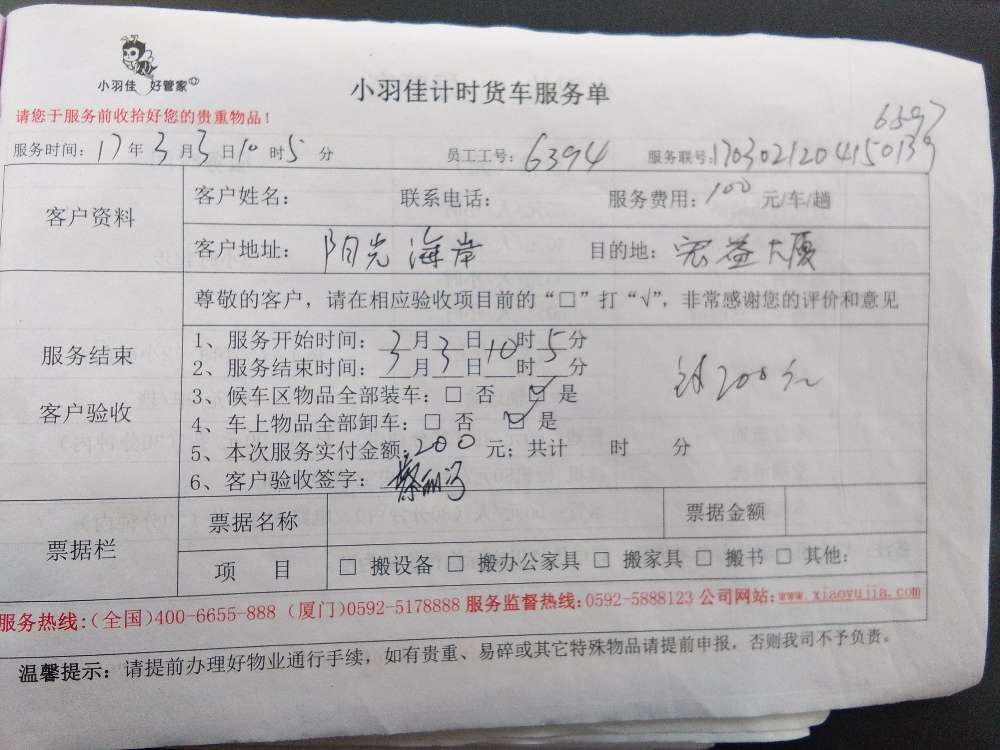 小羽佳 好管家
小羽佳计时货车服务单
请您于服务前收拾好您的贵重物品！
6397
服务时间：17年3月3日10时5分 员工工号：6394 服务联号：1703021204150139
客户资料
客户姓名： 联系电话： 服务费用：100元/车/趟
客户地址：阳光海岸 目的地：宏益大厦
服务结束
客户验收
尊敬的客户，请在相应验收项目前的“□”打“√”，非常感谢您的评价和意见
1、服务开始时间：3月3日10时5分
2、服务结束时间：月日时分
3、候车区物品全部装车：□ 否 ☑ 是
4、车上物品全部卸车：□ 否 ☑ 是
5、本次服务实付金额：200元；共计 时 分
6、客户验收签字：
200元
票据栏
票据名称 票据金额
项目 □ 搬设备 □ 搬办公家具 □ 搬家具 □ 搬书 □ 其他：
服务热线：（全国）400-6655-888（厦门）0592-5178888 服务监督热线：0592-5888123 公司网站：www.xiaoyujia.com
温馨提示：请提前办理好物业通行手续，如有贵重、易碎或其它特殊物品请提前申报，否则我司不予负责。